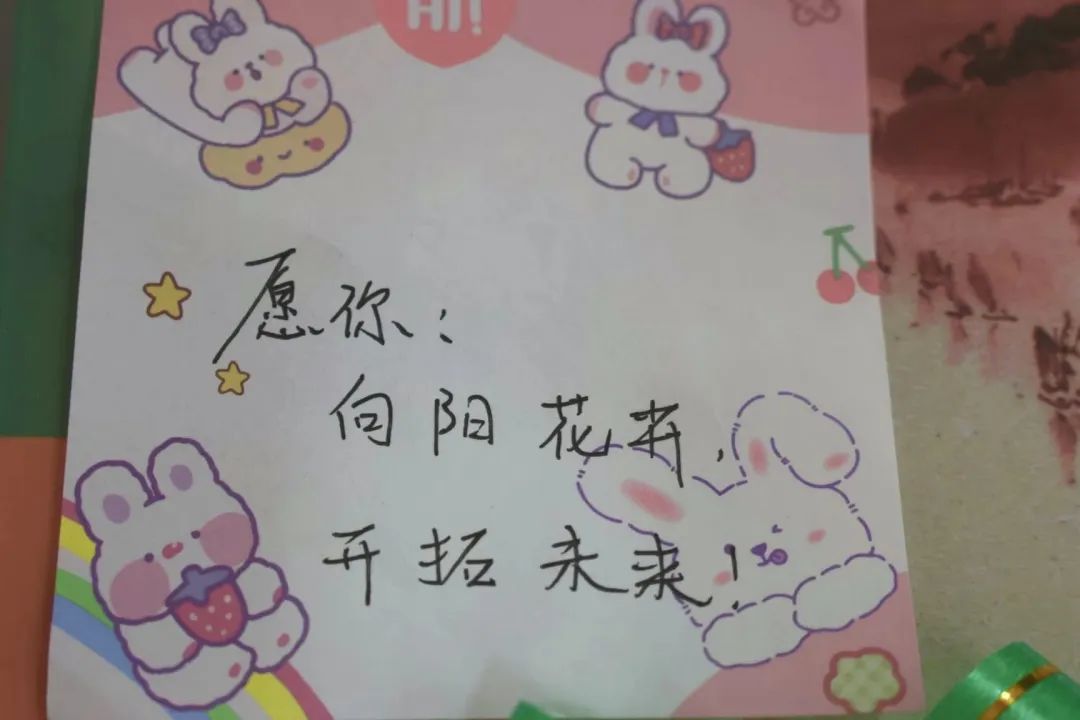 HI!
愿你：
向阳花卉，
开拓未来！